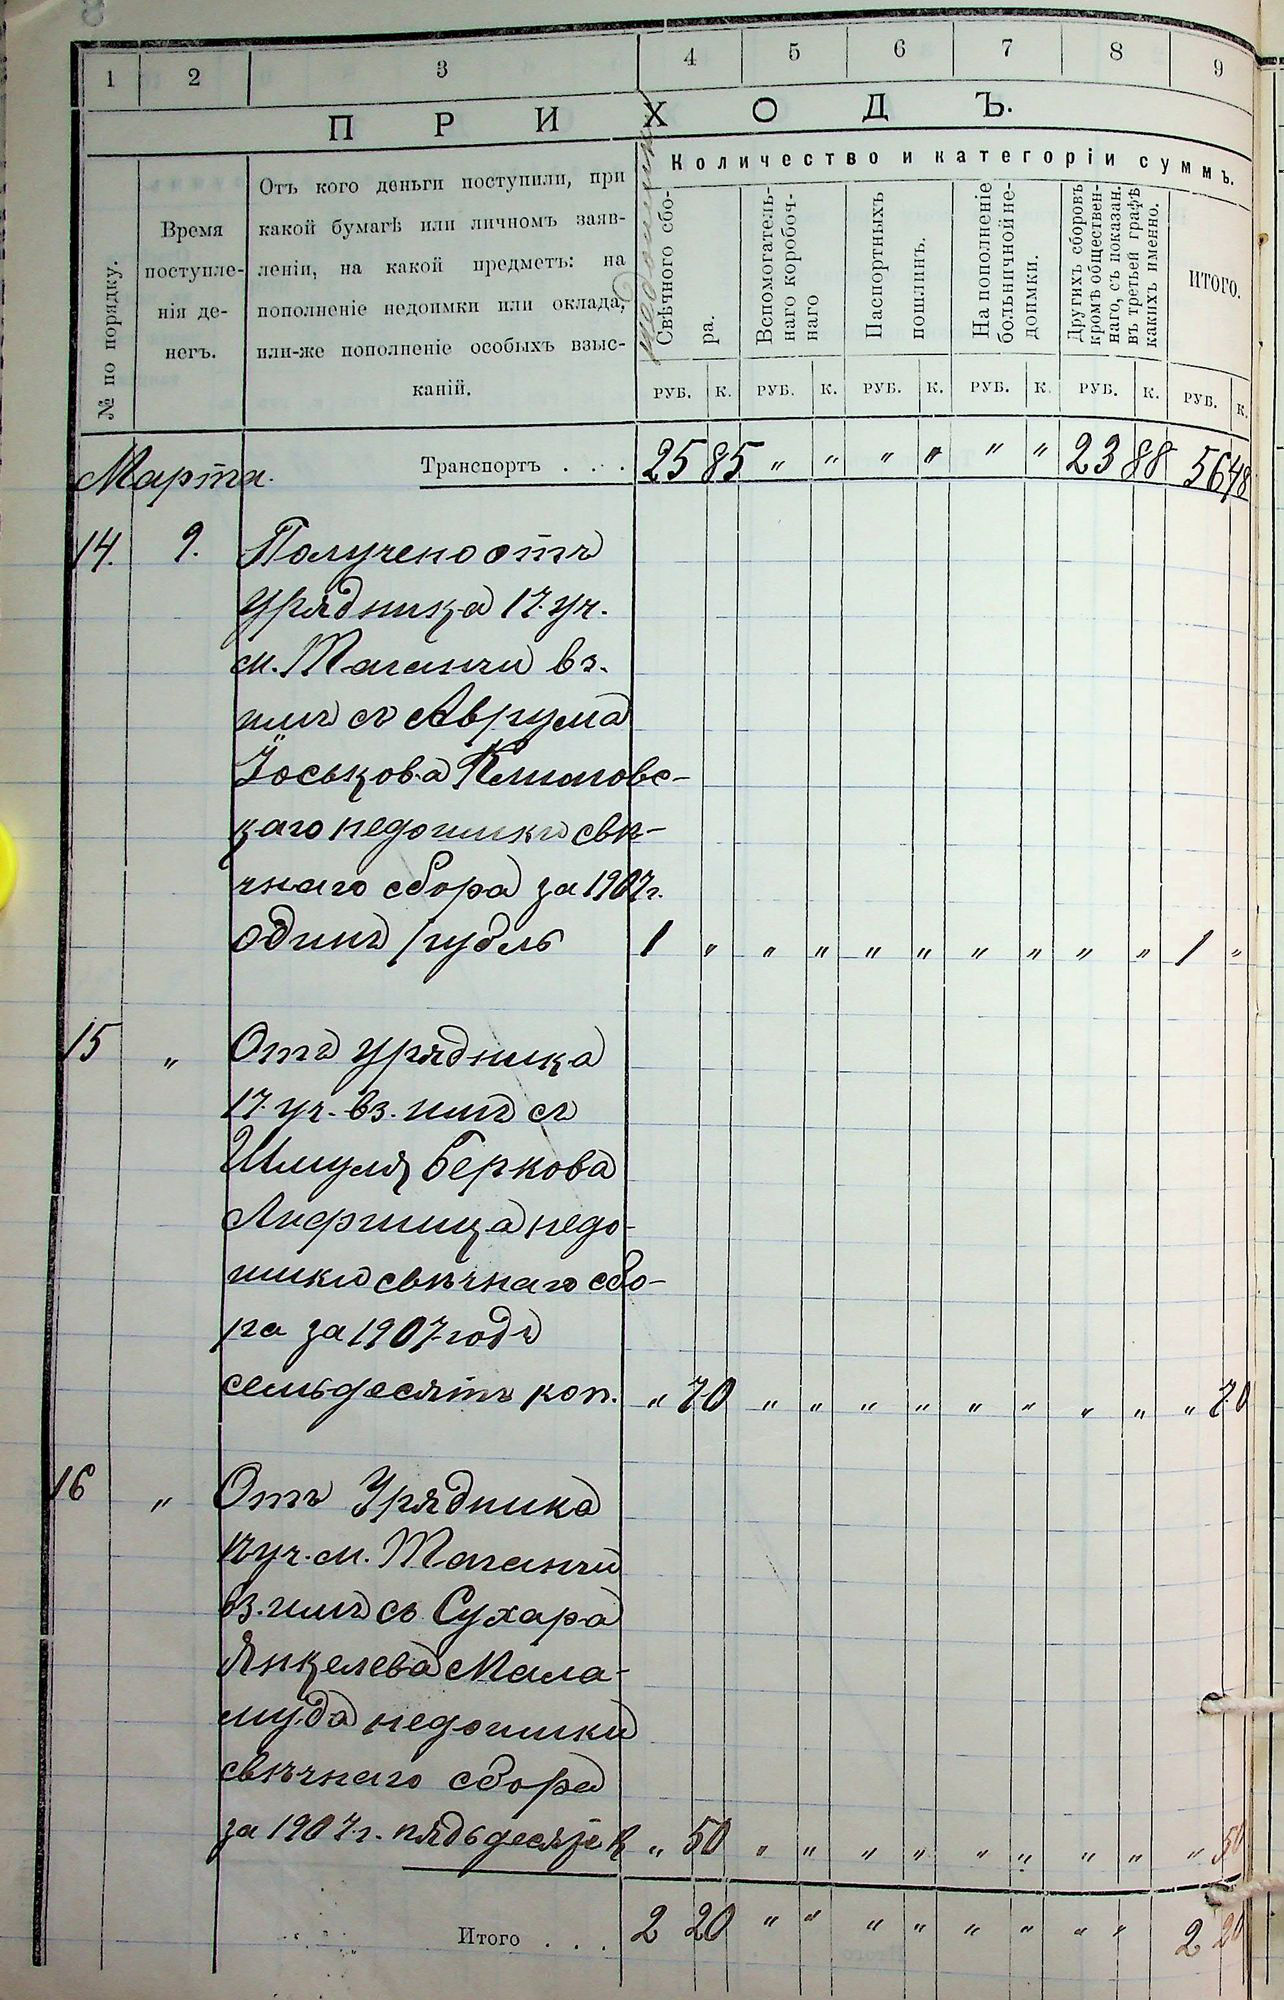 1 2 3 4 5 6 7 8 9
ПРИХОДЪ.
Количество и категоріи суммъ.
№ по порядку.
Время
поступле-
нія де-
негъ.
Отъ кого деньги поступили, при
какой бумагѣ или личномъ заяв-
леніи, на какой предметъ: на
пополненіе недоимки или оклада,
или-же пополненіе особыхъ взыс-
каній.
Свѣчного сбо-
ра.
Вспомогатель-
наго коробоч-
наго
Паспортныхъ
пошлинъ.
На пополненіе
больничной не-
доимки.
Другихъ сборовъ
кромѣ обществен-
наго, съ показан.
въ третьей графѣ
какихъ именно.
ИТОГО.
РУБ. К. РУБ. К. РУБ. К. РУБ. К. РУБ. К. РУБ. К.
Марта. Транспортъ . . . 25 85 " " " " " " 23 88 56 48
14. 9. Получено отъ
Урядника 17. уч.
м. Таганчи вз.
имъ съ Аврума
Іоськова
каго недоимки свѣ-
чнаго сбора за 1907 г.
одинъ рубль 1 " " " " " " " " " 1 "
15 " Отъ урядника
17. уч. вз. имъ съ
Шмуля Беркова
Лифшица недо-
имки свѣчнаго сбо-
ра за 1907 годъ
семьдесятъ коп. " 70 " " " " " " " " " 70
16 " Отъ Урядника
17 уч. м. Таганчи
вз. имъ съ Сухара
Янкелева Мала-
муда недоимки
свѣчнаго сбора
за 1907. г. пядьдесятъ к " 50 " " " " " " " " " 50
Итого . . . 2 20 " " " " " " " " 2 20